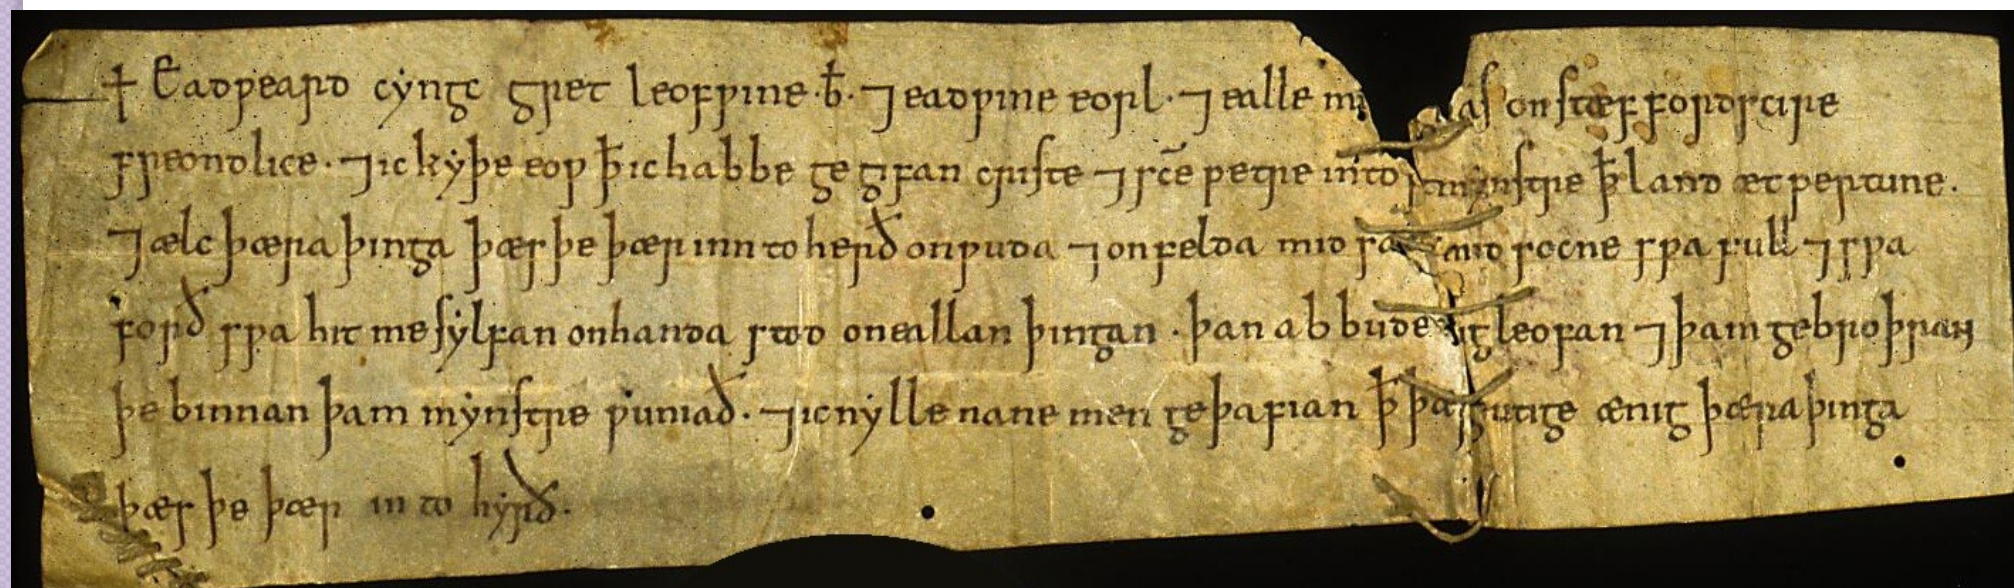 ✝ Eadƿeard cyngc gret leofƿine .b̄. ⁊ eadƿine eorl. ⁊ ealle on stæffordscire
freondlice. ⁊ ic kyþe eoƿ ꝥ ic habbe ge gifan criste ⁊ sc̄e petre into þam mynstre ꝥ land æt pertune.
⁊ ælc þæra þinga þæs þe þær inn to herð on ƿuda ⁊ on felda mid mid socne sƿa full ⁊ sƿa
forð sƿa hit me sylfan on handa stod on eallan þingan. þan abbude leofan ⁊ þam gebroþran
þe binnan þam mynstre ƿuniað. ⁊ ic nylle nane men geþafian ꝥ ænig þæra þinga
þæs þe þær in to hyrð.